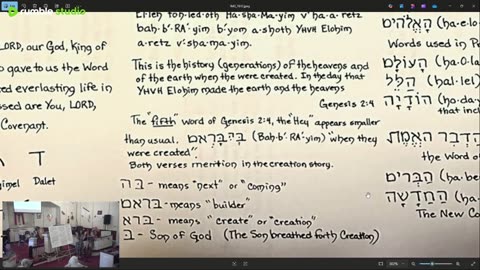 rumble studio
LORD, our God, king of
o gave us the Word
ted everlasting life in
ssed are You, LORD,
Covenant.
ד
gimel Dalet
Ha·sha·Ma·yim v' ha·a·retz
bah·b'·RA'·yim b'yom a·shoth YHVH Elohim
a·retz v'·sha·ma·yim.
This is the history (generations) of the heavens and
of the earth when the were created. In the day that
YHVH Elohim made the earth and the heavens
Genesis 2:4
The "fifth" word of Genesis 2:4, the "Hey" appears smaller
than usual. (Bah·b'·RA'·yim) "when they
were created".
Both verses mention in the creation story.
בה - means "next" or "coming"
בראם - means "builder"
ברא - means "create" or "creation"
ב - Son of God (The Son breathed forth Creation)
הָאֱלֹהִים (ha·e
Words used in P
הָעוֹלָם (ha·o
הַלֵּל (hal·lel)
הוֹדָיָה (ho·da
that incl
הַדְּבַר הָאֱמֶת
the Word o
(ha·be
הַחֲדָשָׁה (ha
The New Co